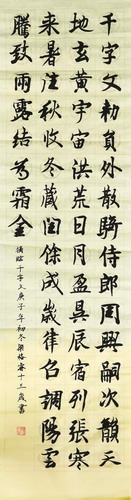 千字文勅員外散騎侍郎周興嗣次韻天
地玄黃宇宙洪荒日月盈昃辰宿列張寒
來暑往秋收冬藏閏餘成歲律召調陽雲
騰致雨露結為霜金
摘臨千字文庚子年初冬梁格睿十三歲書